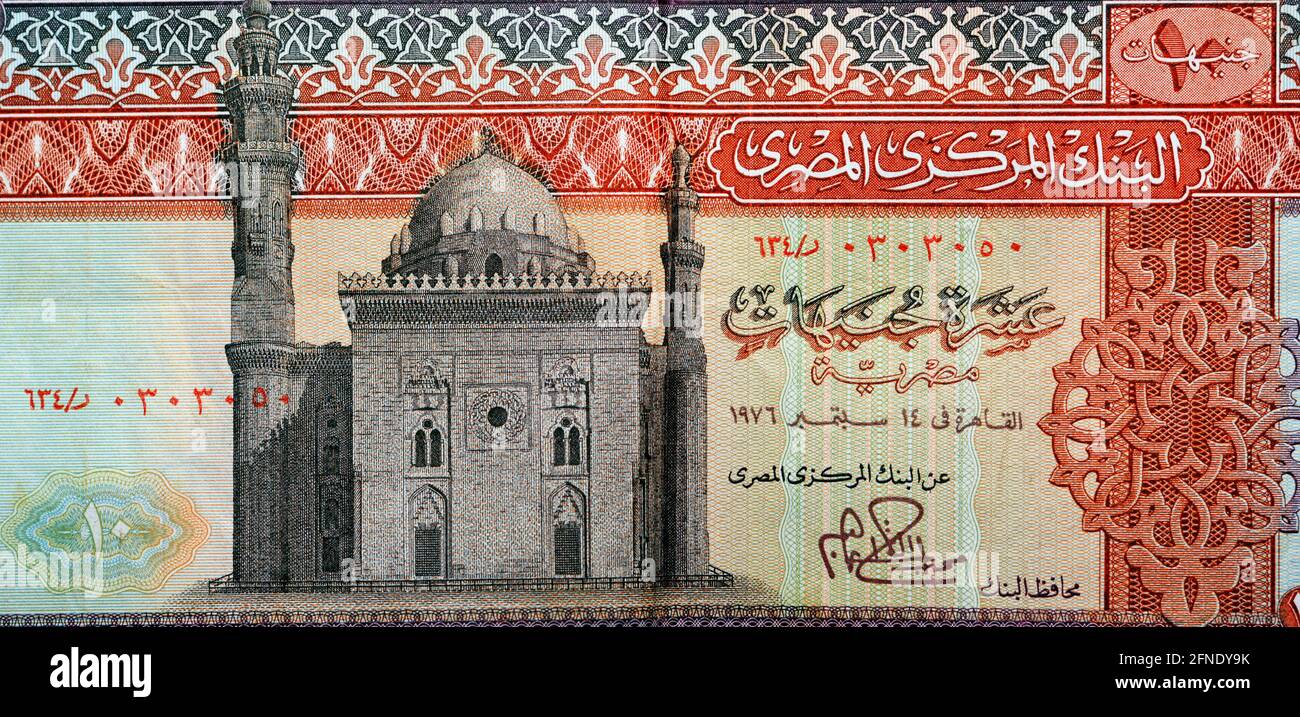 ١٠ جنيهات
البنك المركزى المصرى
٦٣٤/د ٠٣٠٣٠٥٠
عشرة جنيهات
مصرية
القاهرة فى ١٤ سبتمبر ١٩٧٦
عن البنك المركزى المصرى
محافظ البنك
٦٣٤/د ٠٣٠٣٠٥٠
١٠
alamy
Image ID: 2FNDY9K
www.alamy.com